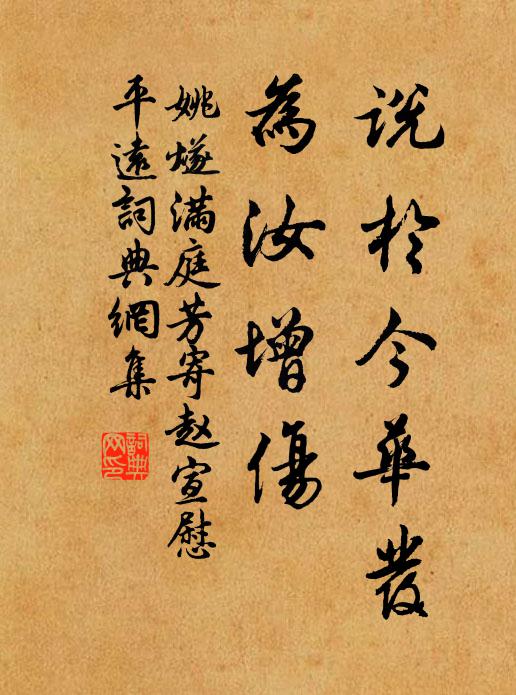 説於今華發
為汝增傷
姚燧滿庭芳寄赵宣慰
平遠詞典網集
詞典
网印